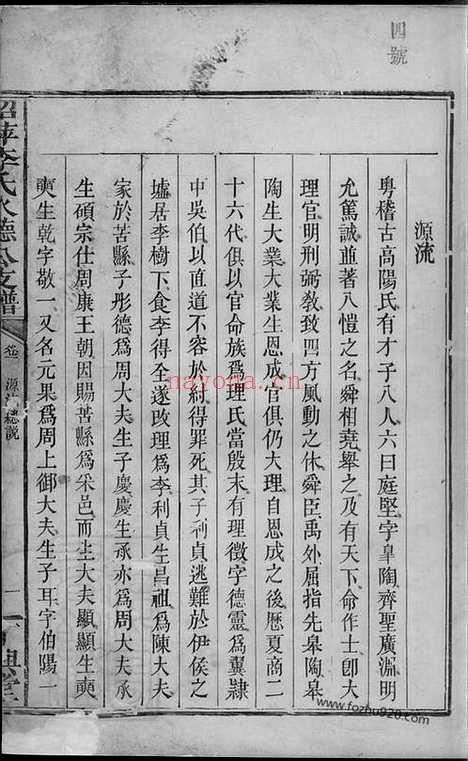 四號
源流
粵稽古高陽氏有才子八人六曰庭堅字皐陶齊聖廣淵明
允篤誠並著八愷之名舜相堯舉之及有天下命作士卽大
理官明刑弼敎致四方風動之休舜臣禹外屈指先皐陶皐
陶生大業大業生恩成官俱仍大理自恩成之後歷夏商二
十六代俱以官命族爲理氏當殷末有理徵字德靈爲翼隸
中吳伯以直道不容於紂得罪死其子利貞逃難於伊侯之
墟居李樹下食李得全遂改理爲李利貞生昌祖爲陳大夫
家於苦縣子彤德爲周大夫生子慶慶生承亦爲周大夫承
生碩宗仕周康王朝因賜苦縣爲采邑而生大夫顯顯生奭
奭生乾字敬一又名元果爲周上御大夫生子耳字伯陽一
李氏水德公支譜
卷 源流總說
一
興堂
nayona.cn
www.fozhu920.com